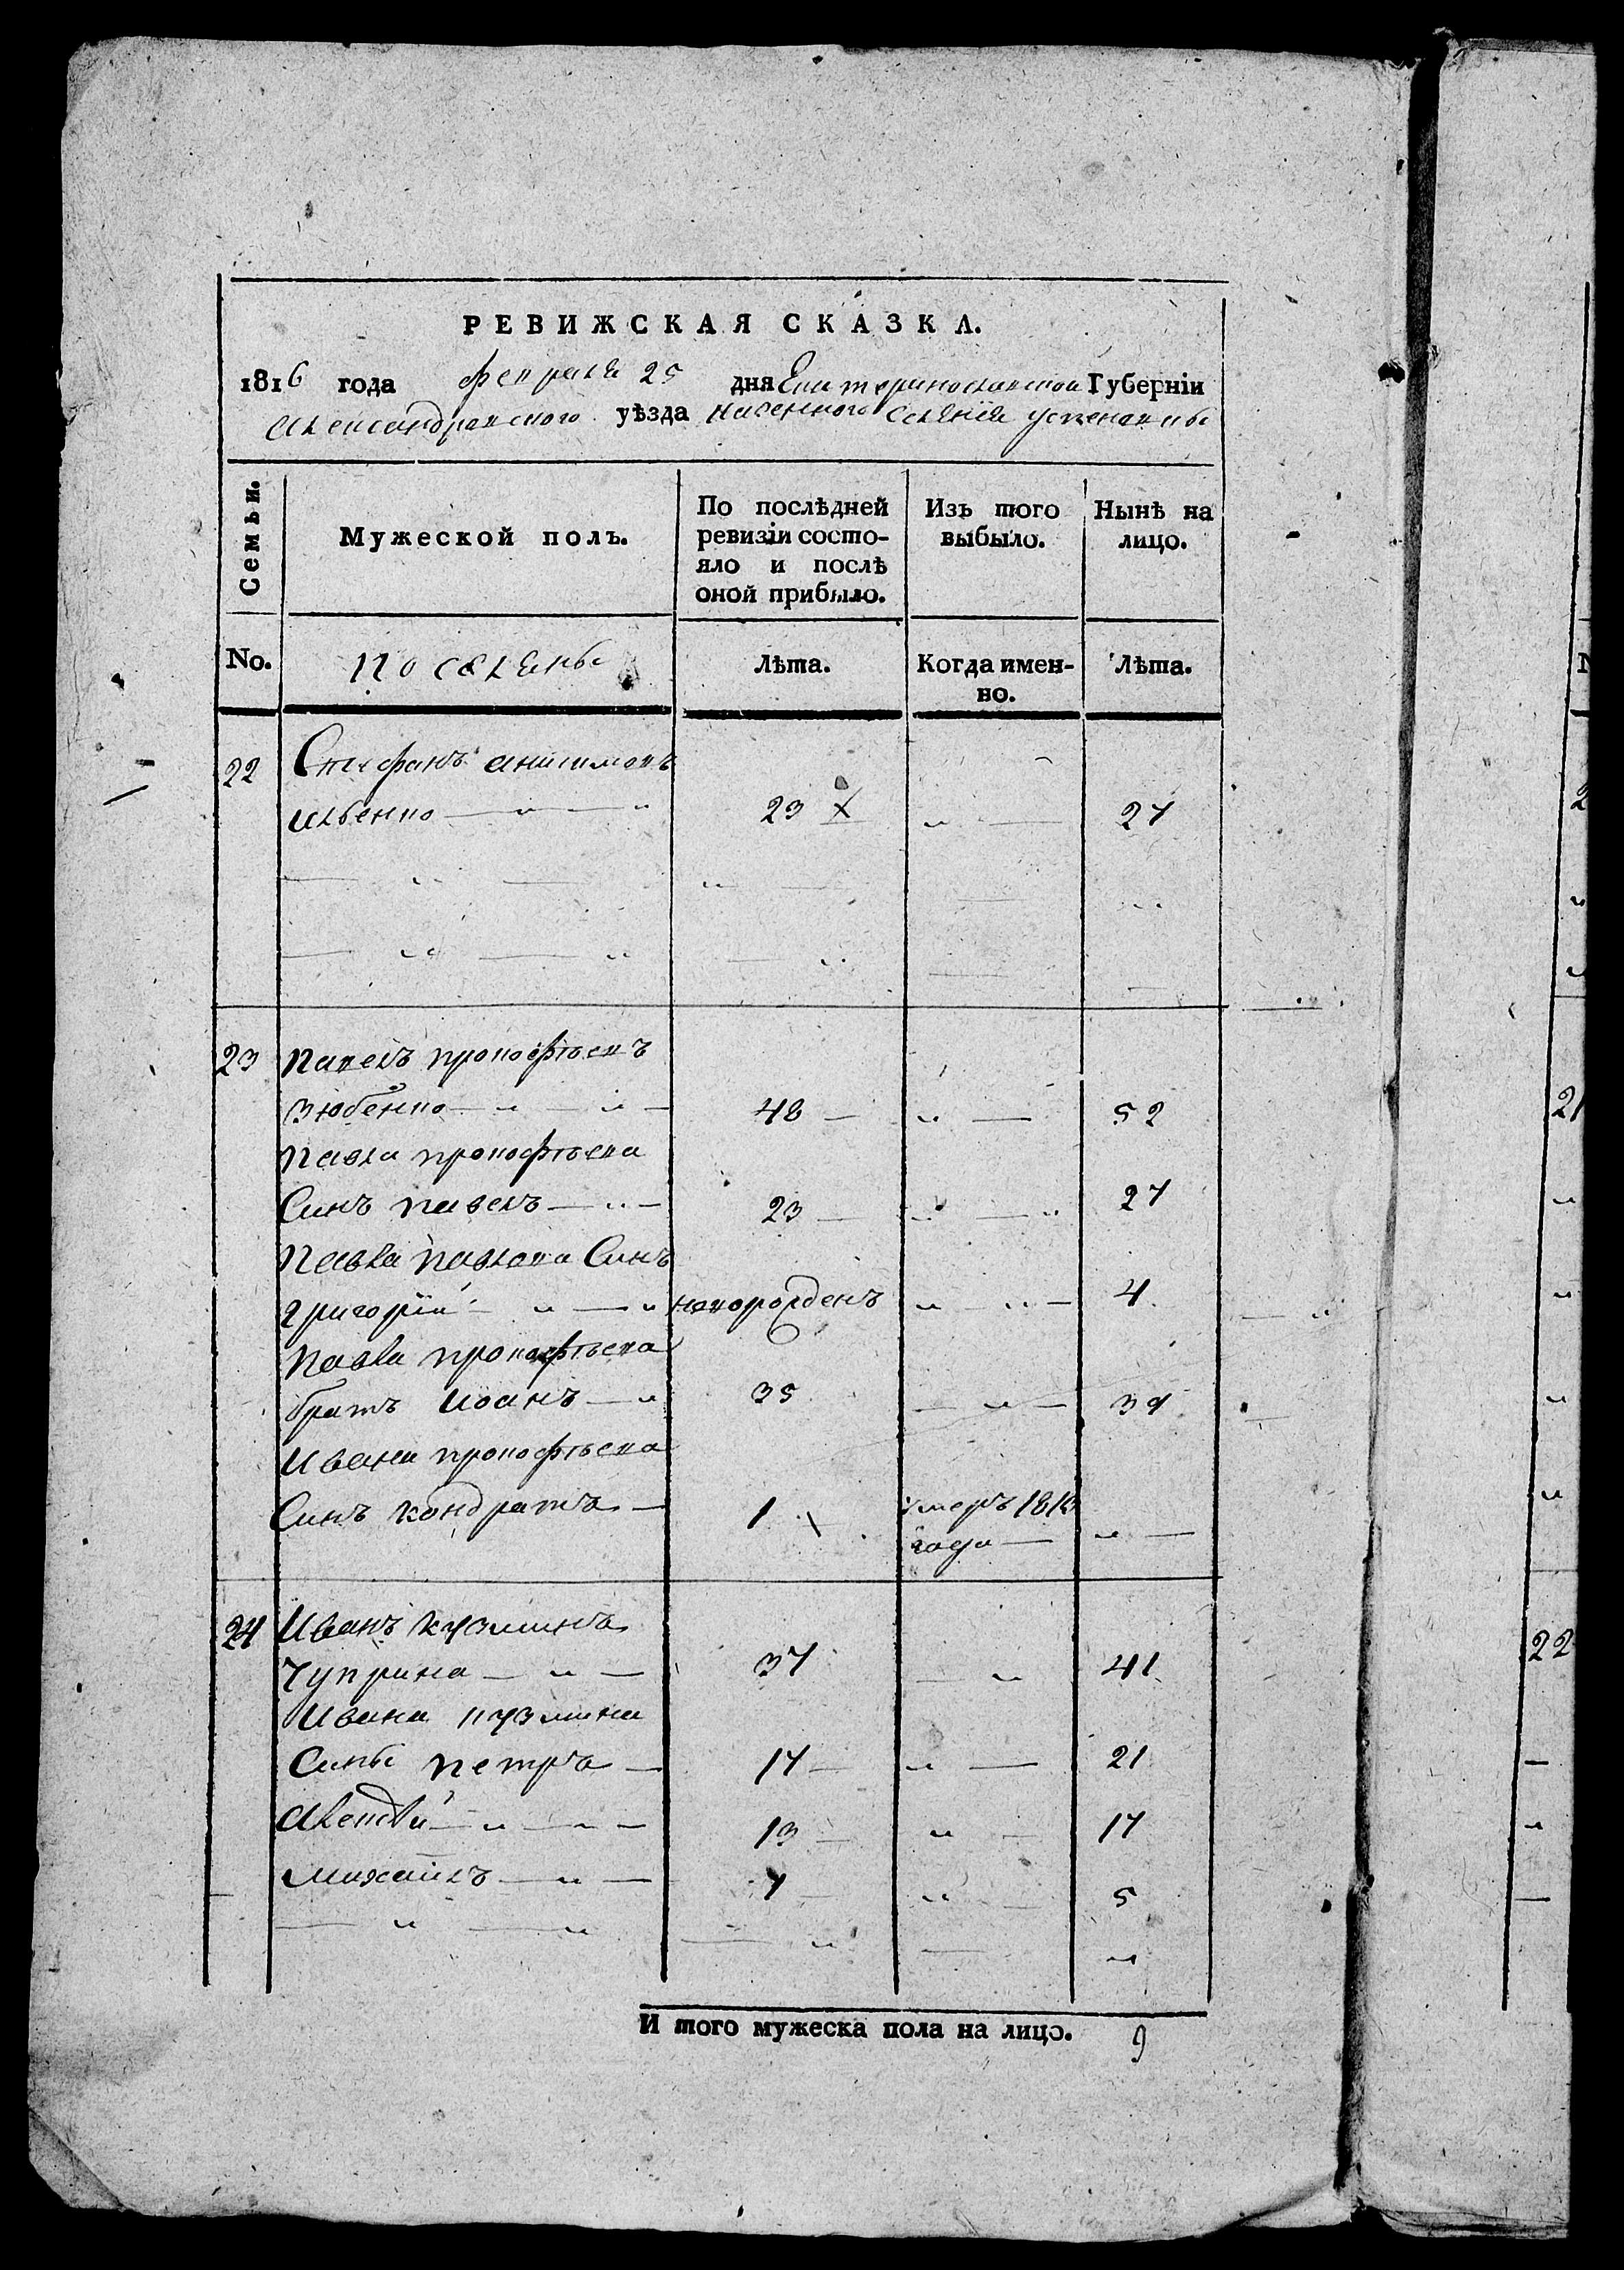 РЕВИЖСКАЯ СКАЗКА.
1816 года февраля 25 дня Екатеринославской Губерніи
Александровского уѣзда казенного Селенія Успеновки
Семьи. Мужеской полъ. По послѣдней ревизіи состояло и послѣ оной прибыло. Изъ того выбыло. Нынѣ на лицо.
No. поселяны Лѣта. Когда именно. Лѣта.
22 Стефанъ анисимовъ
ильенко 23 х 27
23 павелъ прокофьевъ
зюбенко 48 52
павла прокофьева
Синъ павелъ 23 27
павла павлова Синъ
григорій новорожденъ 4
павла прокофьева
братъ иоанъ 35 39
ивана прокофьева
Синъ кондратъ 1 умеръ 1813
года
24 Иванъ кузминъ
чуприна 37 41
Ивана кузмина
Сины петръ 17 21
Алексѣй 13 17
михаилъ 5
И того мужеска пола на лицо. 9
2
21
22